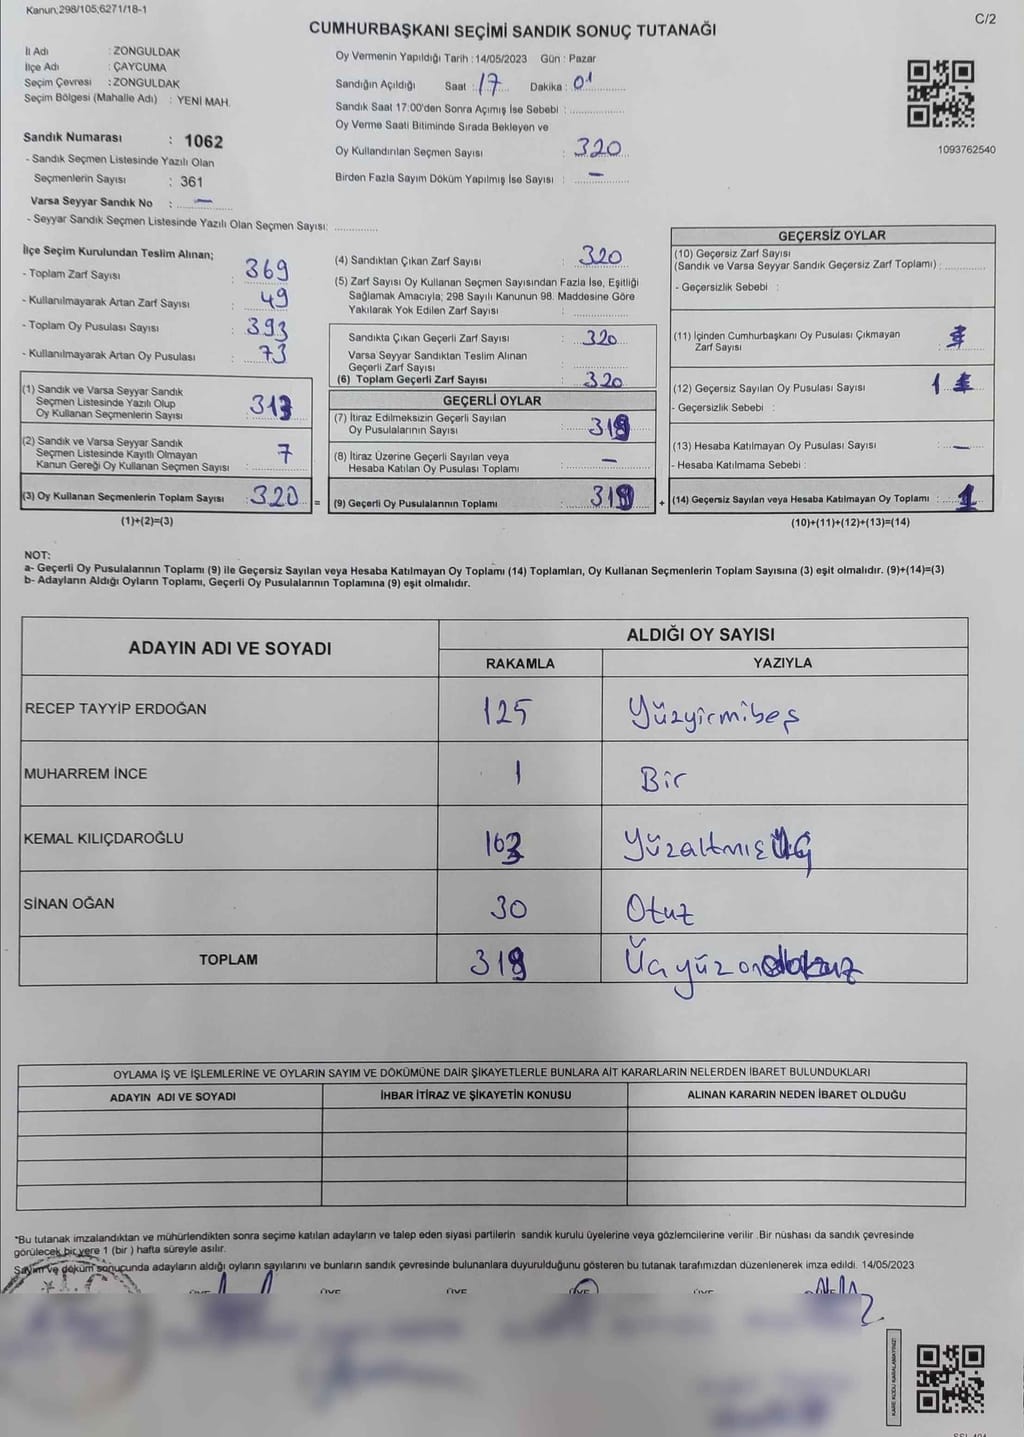 Kanun;298/105;6271/18-1
C/2
CUMHURBAŞKANI SEÇİMİ SANDIK SONUÇ TUTANAĞI
İl Adı : ZONGULDAK
İlçe Adı : ÇAYCUMA
Seçim Çevresi : ZONGULDAK
Seçim Bölgesi (Mahalle Adı) : YENİ MAH.
Sandık Numarası : 1062
- Sandık Seçmen Listesinde Yazılı Olan
Seçmenlerin Sayısı : 361
Varsa Seyyar Sandık No : —
- Seyyar Sandık Seçmen Listesinde Yazılı Olan Seçmen Sayısı:
Oy Vermenin Yapıldığı Tarih : 14/05/2023 Gün : Pazar
Sandığın Açıldığı Saat : 17 Dakika : 01
Sandık Saat 17:00'den Sonra Açımış İse Sebebi :
Oy Verme Saati Bitiminde Sırada Bekleyen ve
Oy Kullandırılan Seçmen Sayısı : 320
Birden Fazla Sayım Döküm Yapılmış İse Sayısı : —
1093762540
İlçe Seçim Kurulundan Teslim Alınan;
- Toplam Zarf Sayısı : 369
- Kullanılmayarak Artan Zarf Sayısı : 49
- Toplam Oy Pusulası Sayısı : 393
- Kullanılmayarak Artan Oy Pusulası : 73
(1) Sandık ve Varsa Seyyar Sandık
Seçmen Listesinde Yazılı Olup
Oy Kullanan Seçmenlerin Sayısı : 313
(2) Sandık ve Varsa Seyyar Sandık
Seçmen Listesinde Kayıtlı Olmayan
Kanun Gereği Oy Kullanan Seçmen Sayısı : 7
(3) Oy Kullanan Seçmenlerin Toplam Sayısı : 320 =
(1)+(2)=(3)
(4) Sandıktan Çıkan Zarf Sayısı : 320
(5) Zarf Sayısı Oy Kullanan Seçmen Sayısından Fazla İse, Eşitliği
Sağlamak Amacıyla; 298 Sayılı Kanunun 98. Maddesine Göre
Yakılarak Yok Edilen Zarf Sayısı :
Sandıkta Çıkan Geçerli Zarf Sayısı : 320
Varsa Seyyar Sandıktan Teslim Alınan
Geçerli Zarf Sayısı :
(6) Toplam Geçerli Zarf Sayısı : 320
GEÇERLİ OYLAR
(7) İtiraz Edilmeksizin Geçerli Sayılan
Oy Pusulalarının Sayısı : 319
(8) İtiraz Üzerine Geçerli Sayılan veya
Hesaba Katılan Oy Pusulası Toplamı : —
(9) Geçerli Oy Pusulalarının Toplamı : 319 +
GEÇERSİZ OYLAR
(10) Geçersiz Zarf Sayısı
(Sandık ve Varsa Seyyar Sandık Geçersiz Zarf Toplamı) :
- Geçersizlik Sebebi :
(11) İçinden Cumhurbaşkanı Oy Pusulası Çıkmayan
Zarf Sayısı :
(12) Geçersiz Sayılan Oy Pusulası Sayısı : 1
- Geçersizlik Sebebi :
(13) Hesaba Katılmayan Oy Pusulası Sayısı : —
- Hesaba Katılmama Sebebi :
(14) Geçersiz Sayılan veya Hesaba Katılmayan Oy Toplamı : 1
(10)+(11)+(12)+(13)=(14)
NOT:
a- Geçerli Oy Pusulalarının Toplamı (9) ile Geçersiz Sayılan veya Hesaba Katılmayan Oy Toplamı (14) Toplamları, Oy Kullanan Seçmenlerin Toplam Sayısına (3) eşit olmalıdır. (9)+(14)=(3)
b- Adayların Aldığı Oyların Toplamı, Geçerli Oy Pusulalarının Toplamına (9) eşit olmalıdır.
ADAYIN ADI VE SOYADI
ALDIĞI OY SAYISI
RAKAMLA YAZIYLA
RECEP TAYYİP ERDOĞAN 125 Yüzyirmibeş
MUHARREM İNCE 1 Bir
KEMAL KILIÇDAROĞLU 163 Yüzaltmışüç
SİNAN OĞAN 30 Otuz
TOPLAM 319 Üçyüzondokuz
OYLAMA İŞ VE İŞLEMLERİNE VE OYLARIN SAYIM VE DÖKÜMÜNE DAİR ŞİKAYETLERLE BUNLARA AİT KARARLARIN NELERDEN İBARET BULUNDUKLARI
ADAYIN ADI VE SOYADI İHBAR İTİRAZ VE ŞİKAYETİN KONUSU ALINAN KARARIN NEDEN İBARET OLDUĞU
*Bu tutanak imzalandıktan ve mühürlendikten sonra seçime katılan adayların ve talep eden siyasi partilerin sandık kurulu üyelerine veya gözlemcilerine verilir .Bir nüshası da sandık çevresinde
görülecek bir yere 1 (bir ) hafta süreyle asılır.
Sayım ve döküm sonucunda adayların aldığı oyların sayılarını ve bunların sandık çevresinde bulunanlara duyurulduğunu gösteren bu tutanak tarafımızdan düzenlenerek imza edildi. 14/05/2023
KARE KODU KARALAMAYINIZ!